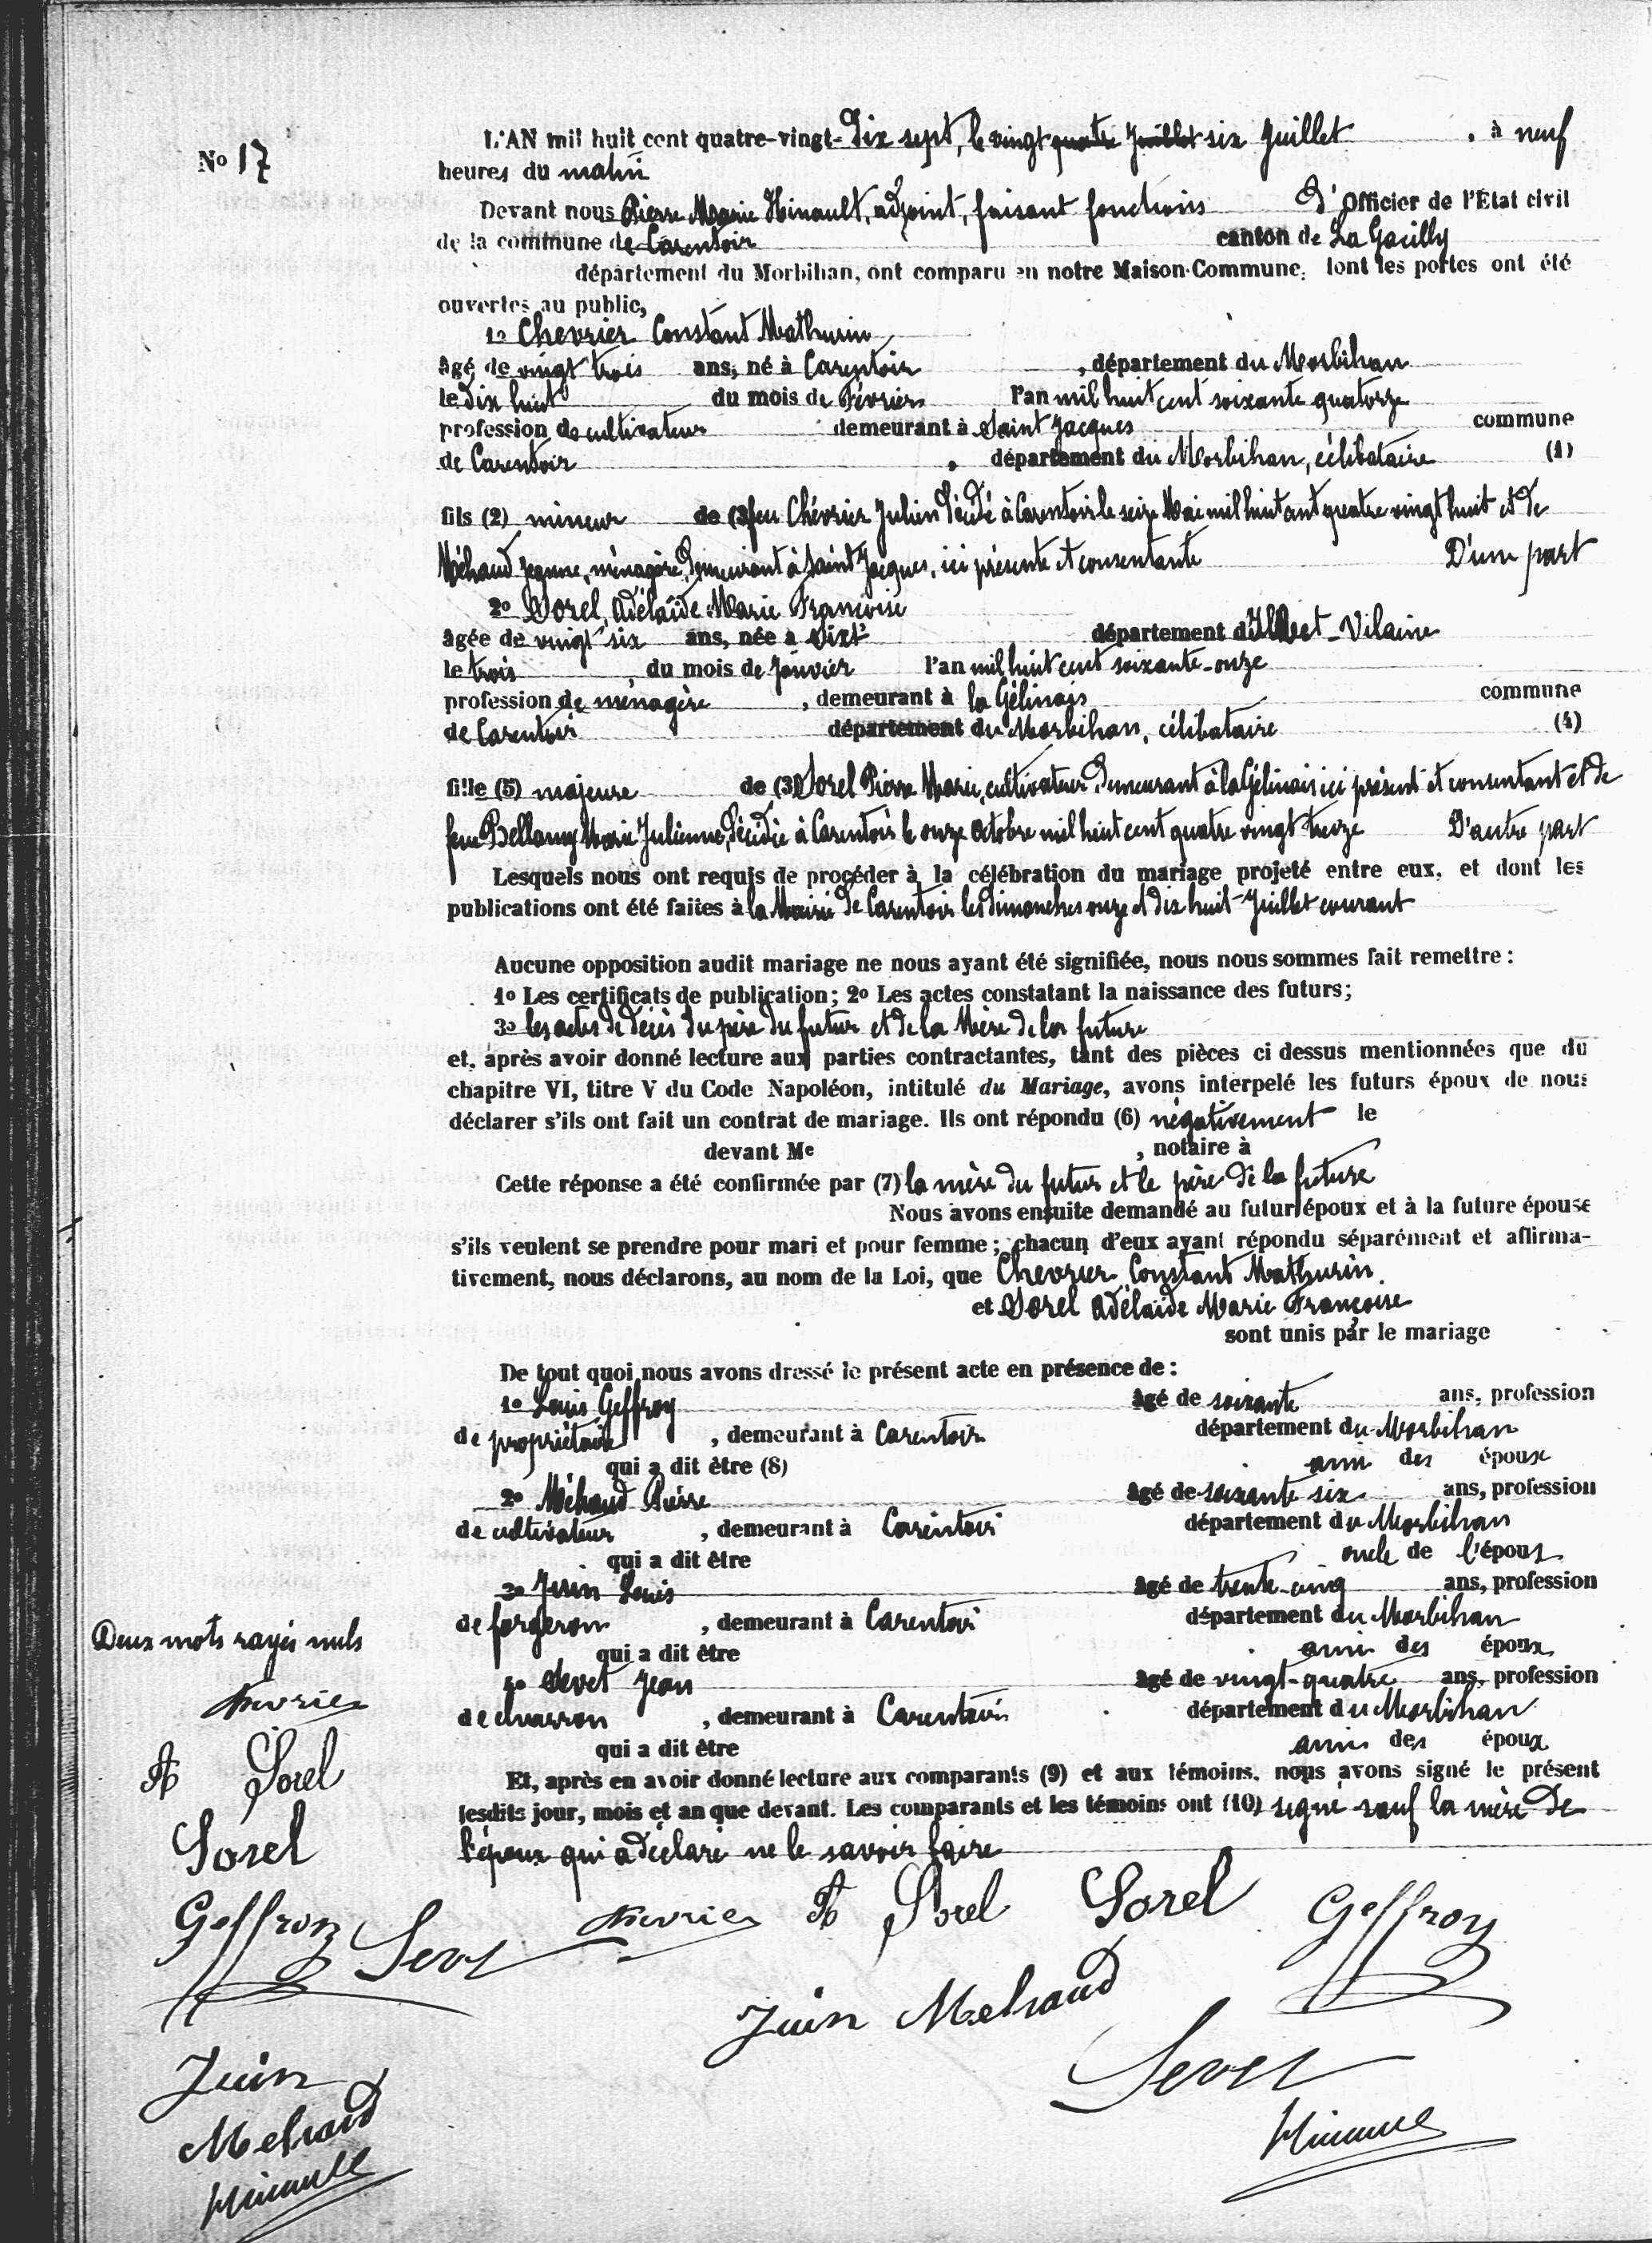 No 17
L'AN mil huit cent quatre-vingt-dix sept, le vingt quatre Juillet six Juillet , à neuf
heures du matin
Devant nous Pierre Marie Hinault, adjoint, faisant fonctions d'Officier de l'État civil
de la commune de Carentoir canton de La Gacilly
département du Morbihan, ont comparu en notre Maison-Commune, dont les portes ont été
ouvertes au public,
1o Chevrier Constant Mathurin
âgé de vingt trois ans, né à Carentoir , département du Morbihan
le dix huit du mois de Février l'an mil huit cent soixante quatorze
profession de cultivateur demeurant à Saint Jacques commune
de Carentoir , département du Morbihan, célibataire (1)
fils (2) mineur de (3) feu Chévrier Julien décédé à Carentoir le seize Mai mil huit cent quatre vingt huit et de
Méhaud Jeanne, ménagère, demeurant à Saint Jacques, ici présente et consentante D'une part
2o Sorel, Adélaïde Marie Françoise
âgée de vingt six ans, née à Sixt département d'Ille-et-Vilaine
le trois , du mois de Janvier l'an mil huit cent soixante-onze
profession de ménagère , demeurant à la Gélinais commune
de Carentoir département du Morbihan, célibataire (4)
fille (5) majeure de (3) Sorel Pierre Marie, cultivateur, demeurant à la Gélinais ici présent et consentant et de
feue Bellamy Marie Julienne, décédée à Carentoir le onze Octobre mil huit cent quatre vingt treize D'autre part
Lesquels nous ont requis de procéder à la célébration du mariage projeté entre eux, et dont les
publications ont été faites à la Mairie de Carentoir les dimanches onze et dix huit Juillet courant
Aucune opposition audit mariage ne nous ayant été signifiée, nous nous sommes fait remettre :
1o Les certificats de publication; 2o Les actes constatant la naissance des futurs;
3o les actes de décès du père du futur et de la Mère de la future
et, après avoir donné lecture aux parties contractantes, tant des pièces ci dessus mentionnées que du
chapitre VI, titre V du Code Napoléon, intitulé du Mariage, avons interpelé les futurs époux de nous
déclarer s'ils ont fait un contrat de mariage. Ils ont répondu (6) négativement le
devant Me , notaire à
Cette réponse a été confirmée par (7) la mère du futur et le père de la future
Nous avons ensuite demandé au futur époux et à la future épouse
s'ils veulent se prendre pour mari et pour femme ; chacun d'eux ayant répondu séparément et affirma-
tivement, nous déclarons, au nom de la Loi, que Chevrier Constant Mathurin
et Sorel Adélaïde Marie Françoise
sont unis par le mariage
De tout quoi nous avons dressé le présent acte en présence de :
1o Louis Geffroy âgé de soixante ans, profession
de propriétaire , demeurant à Carentoir département du Morbihan
qui a dit être (8) ami des époux
2o Méhaud Pierre âgé de soixante six ans, profession
de cultivateur , demeurant à Carentoir département du Morbihan
qui a dit être oncle de l'époux
3o Juin Louis âgé de trente-cinq ans, profession
de forgeron , demeurant à Carentoir département du Morbihan
qui a dit être ami des époux
4o Sevet Jean âgé de vingt-quatre ans, profession
de charron , demeurant à Carentoir département du Morbihan
qui a dit être ami des époux
Et, après en avoir donné lecture aux comparants (9) et aux témoins, nous avons signé le présent
lesdits jour, mois et an que devant. Les comparants et les témoins ont (10) signé sauf la mère de
l'époux qui a déclaré ne le savoir faire
Deux mots rayés nuls
Chevrier
A Sorel
Sorel
Geffroy Sevet Chevrier A Sorel Sorel Geffroy
Juin Mehaud
Sevet
Hinault
Juin
Mehaud
Hinault